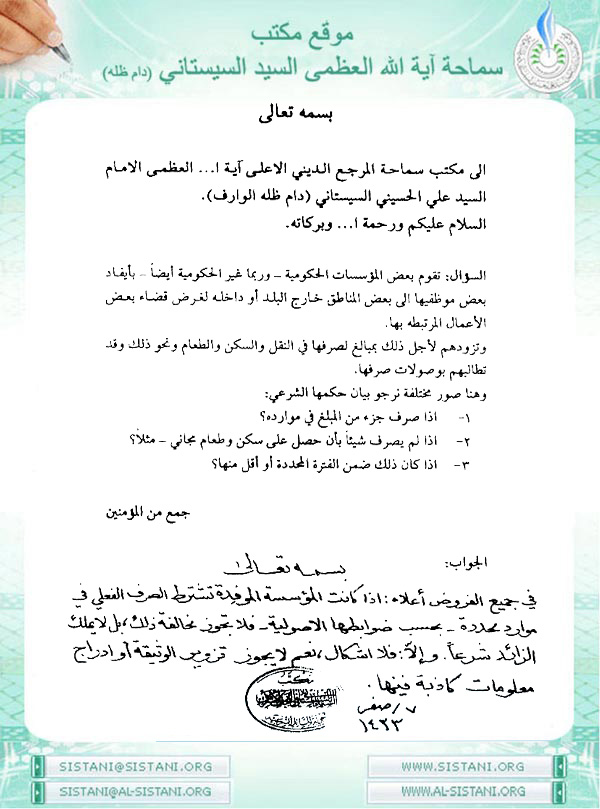 موقع مكتب
سماحة آية الله العظمى السيد السيستاني (دام ظله)
بسمه تعالى
الى مكتب سماحة المرجع الديني الاعلى آية ا... العظمى الامام
السيد علي الحسيني السيستاني (دام ظله الوارف).
السلام عليكم ورحمة ا... وبركاته.
السؤال: تقوم بعض المؤسسات الحكومية - وربما غير الحكومية أيضاً - بأيفاد
بعض موظفيها الى بعض المناطق خارج البلد أو داخله لغرض قضاء بعض
الأعمال المرتبطه بها.
وتزودهم لأجل ذلك بمبالغ لصرفها في النقل والسكن والطعام ونحو ذلك وقد
تطالبهم بوصولات صرفها.
وهنا صور مختلفة نرجو بيان حكمها الشرعي:
١- اذا صرف جزء من المبلغ في موارده؟
٢- اذا لم يصرف شيئاً بأن حصل على سكن وطعام مجاني - مثلاً؟
٣- اذا كان ذلك ضمن الفترة المحددة أو أقل منها؟
جمع من المؤمنين
الجواب:
بسمه تعالى
في جميع الفروض أعلاه: اذا كانت المؤسسة الموفدة تشترط الصرف الفعلي في
موارد محددة - بحسب ضوابطها الاصولية - فلا تجوز مخالفة ذلك، بل لا يملك
الزائد شرعاً. وإلاّ: فلا اشكال، نعم لا يجوز تزوير الوثيقة أو ادراج
معلومات كاذبة فيها.
مكتب
٧/صفر
١٤٢٣
SISTANI@SISTANI.ORG
WWW.SISTANI.ORG
SISTANI@AL-SISTANI.ORG
WWW.AL-SISTANI.ORG